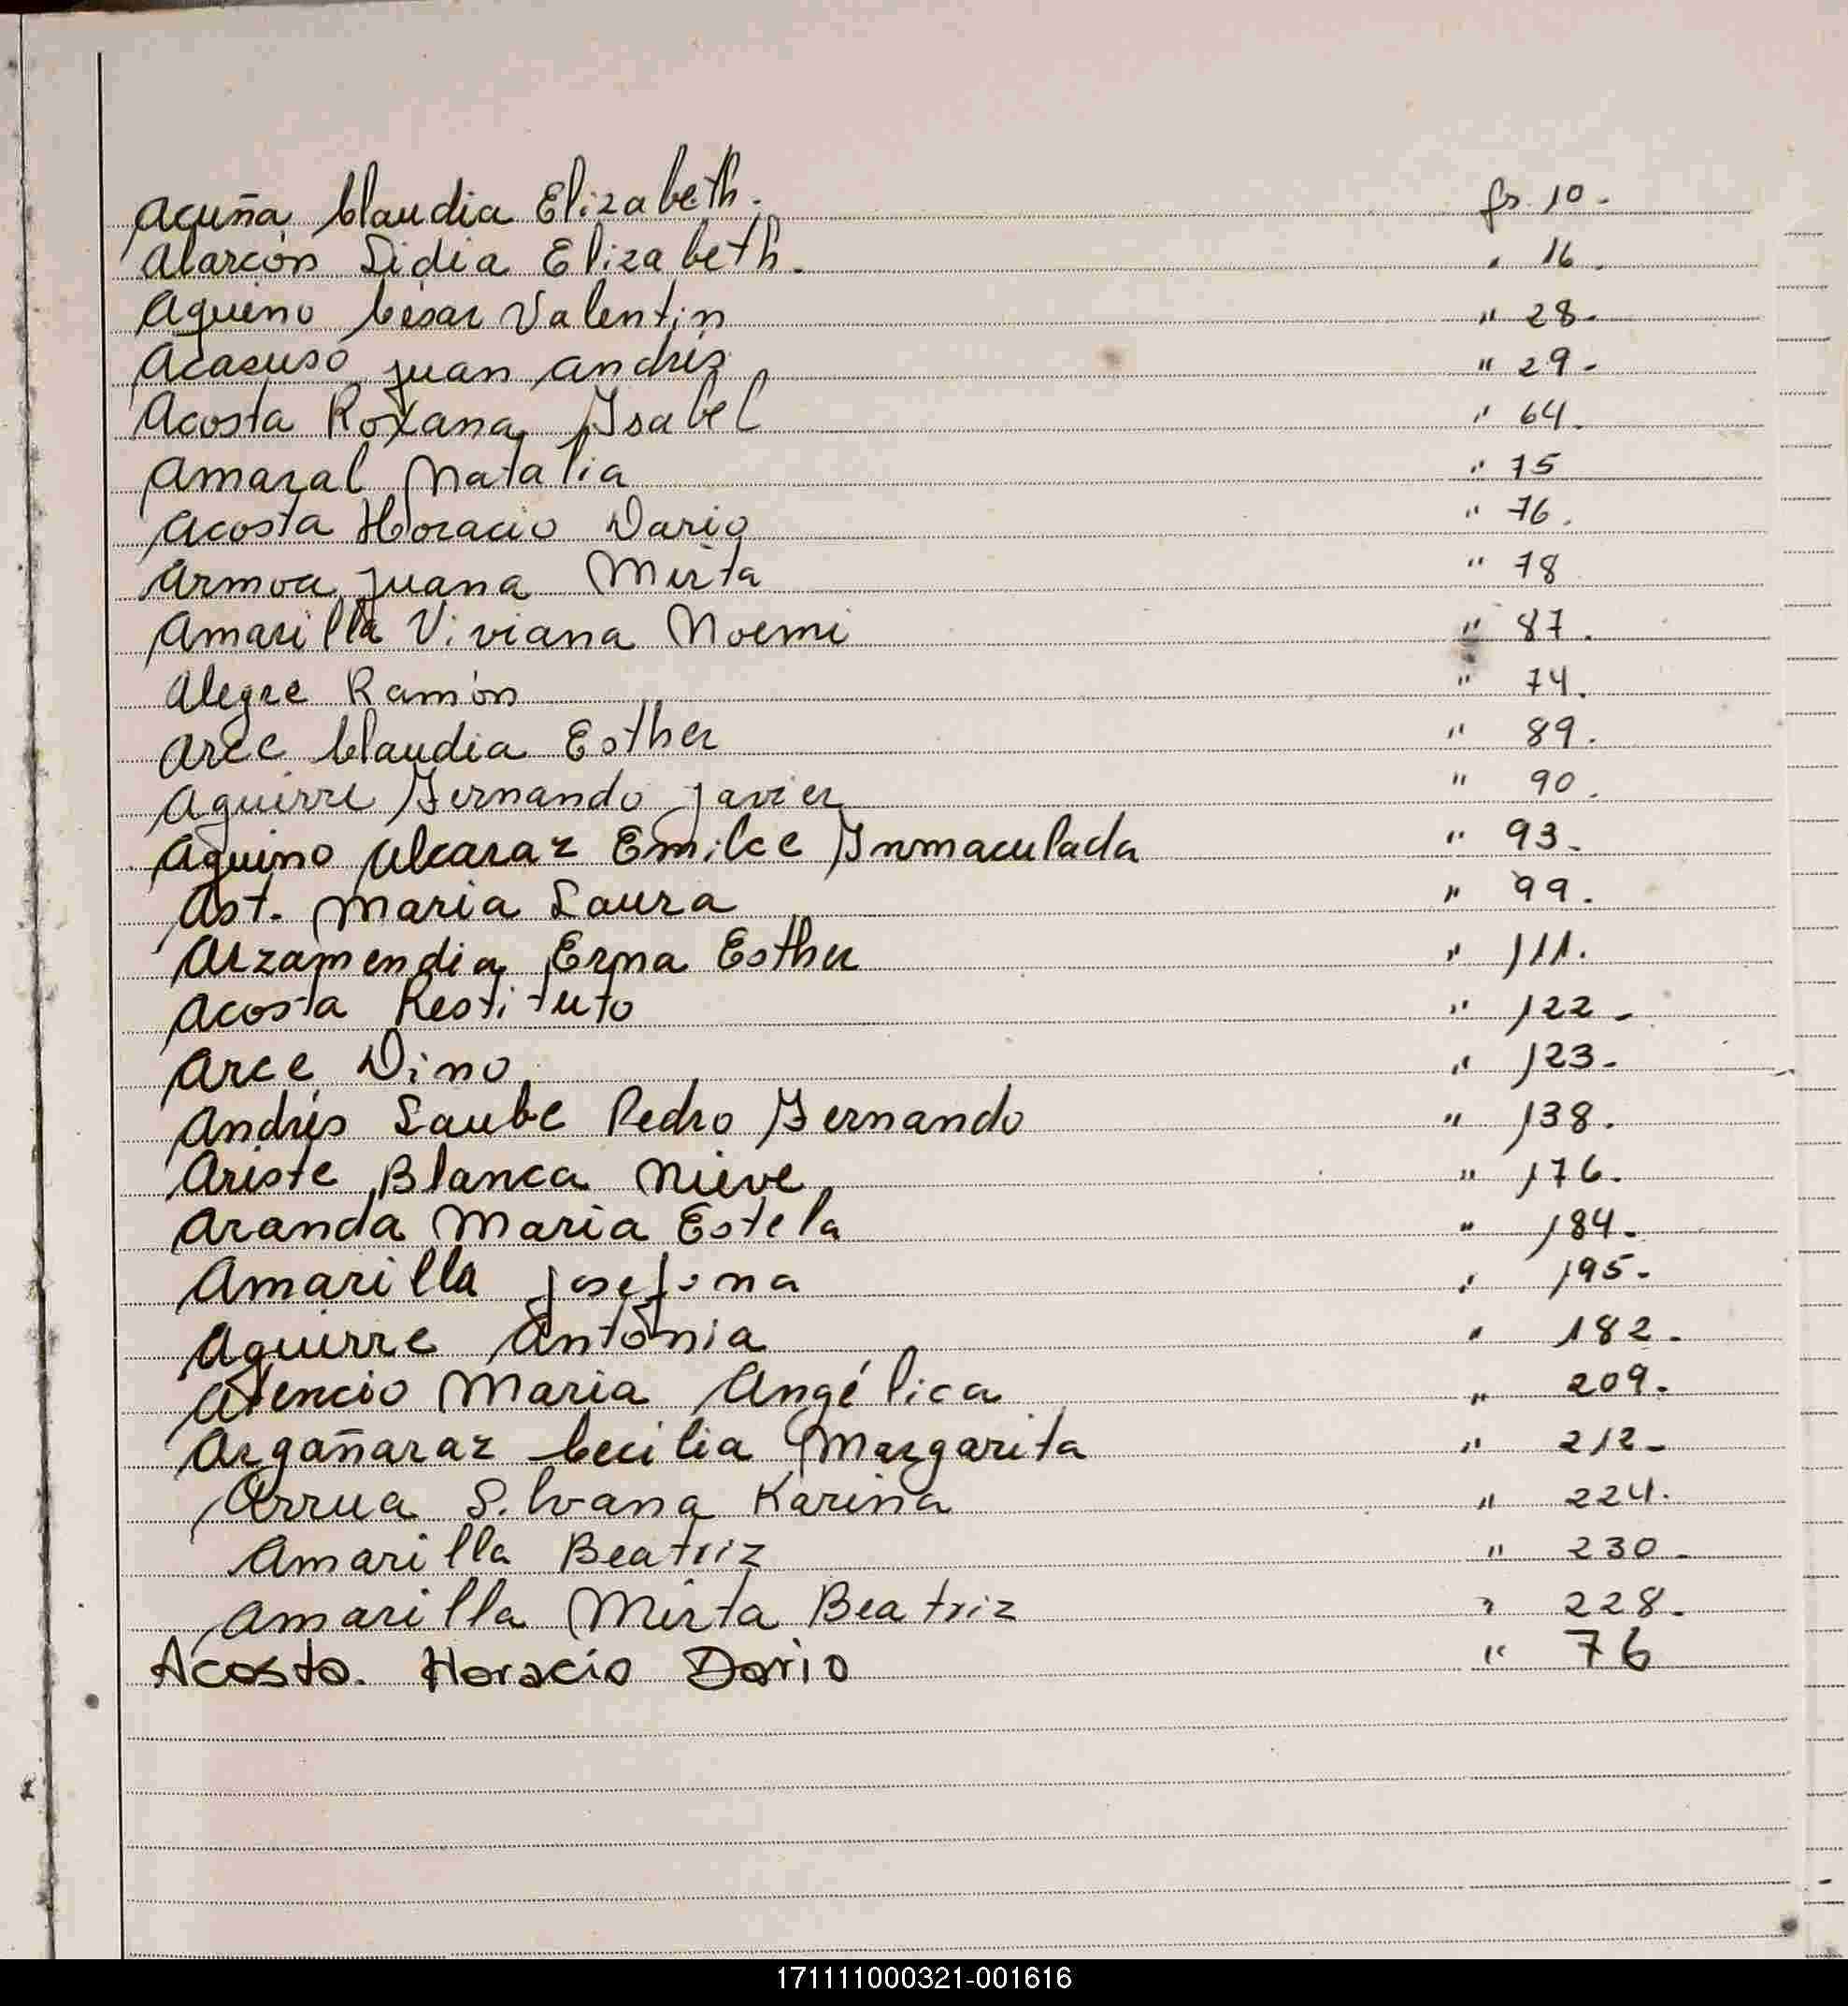 Acuña Claudia Elizabeth. fs. 10.
Alarcón Lidia Elizabeth. " 16.
Aquino César Valentín " 28.
Acasuso Juan Andrés " 29.
Acosta Roxana Ysabel " 64.
Amaral Natalia " 75
Acosta Horacio Dario " 76.
Armoa Juana Mirta " 78
Amarilla Viviana Noemi " 87.
Alegre Ramón " 74.
Arce Claudia Esther " 89.
Aguirre Fernando Javier " 90.
Aquino Alcaraz Emilce Inmaculada " 93.
Ast. Maria Laura " 99.
Arzamendia Erma Esther " 111.
Acosta Restituto " 122.
Arce Dino " 123.
Andrés Laube Pedro Fernando " 138.
Ariste Blanca Nieve " 176.
Aranda Maria Estela " 184.
Amarilla Josefina " 195.
Aguirre Antonia " 182.
Atencio Maria Angélica " 209.
Argañaraz Cecilia Margarita " 212.
Arrua Silvana Karina " 224.
Amarilla Beatriz " 230.
Amarilla Mirta Beatriz " 228.
Acosta. Horacio Dario " 76
171111000321-001616